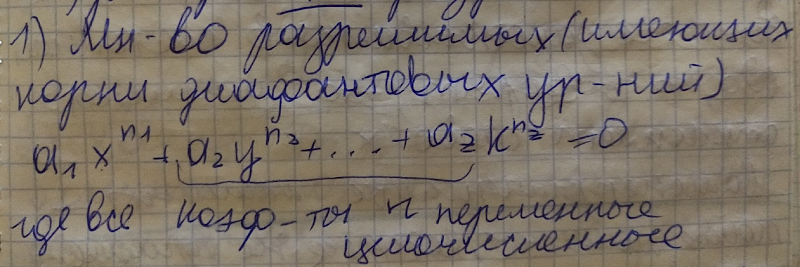 1) Мн-во разрешимых (имеющих
корни диафантовых ур-ний)
a₁x^n₁ + a₂y^n₂ + ... + a_z k^n_z = 0
где все коэф-ты и переменные
целочисленные